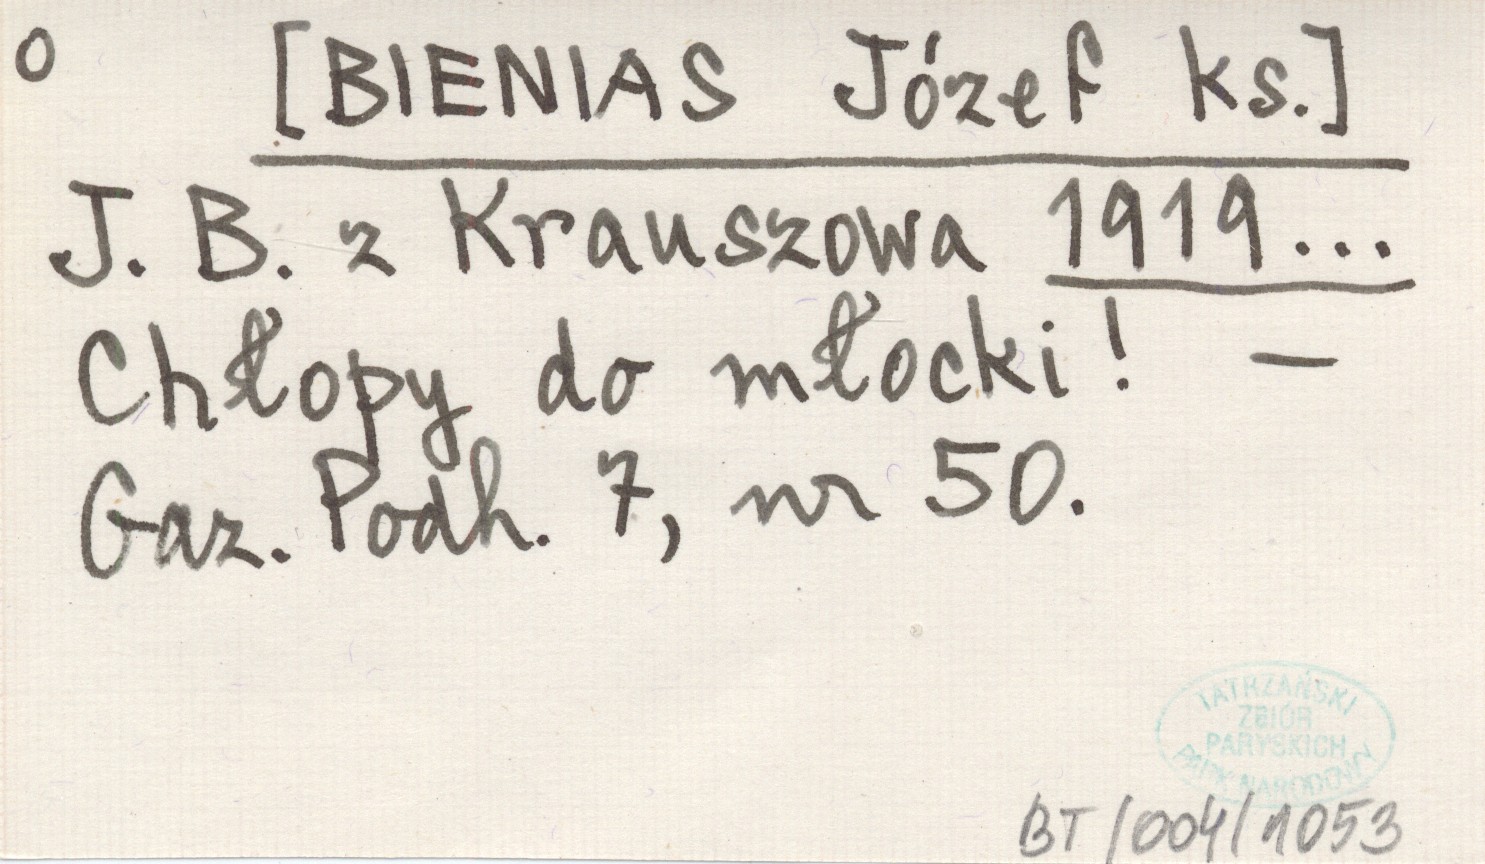 o [BIENIAS Józef ks.]
J. B. z Krauszowa 1919...
Chłopy do młocki! —
Gaz. Podh. 7, nr 50.
TATRZAŃSKI
ZBIÓR
PARYSKICH
PARK NARODOWY
BT/004/1053